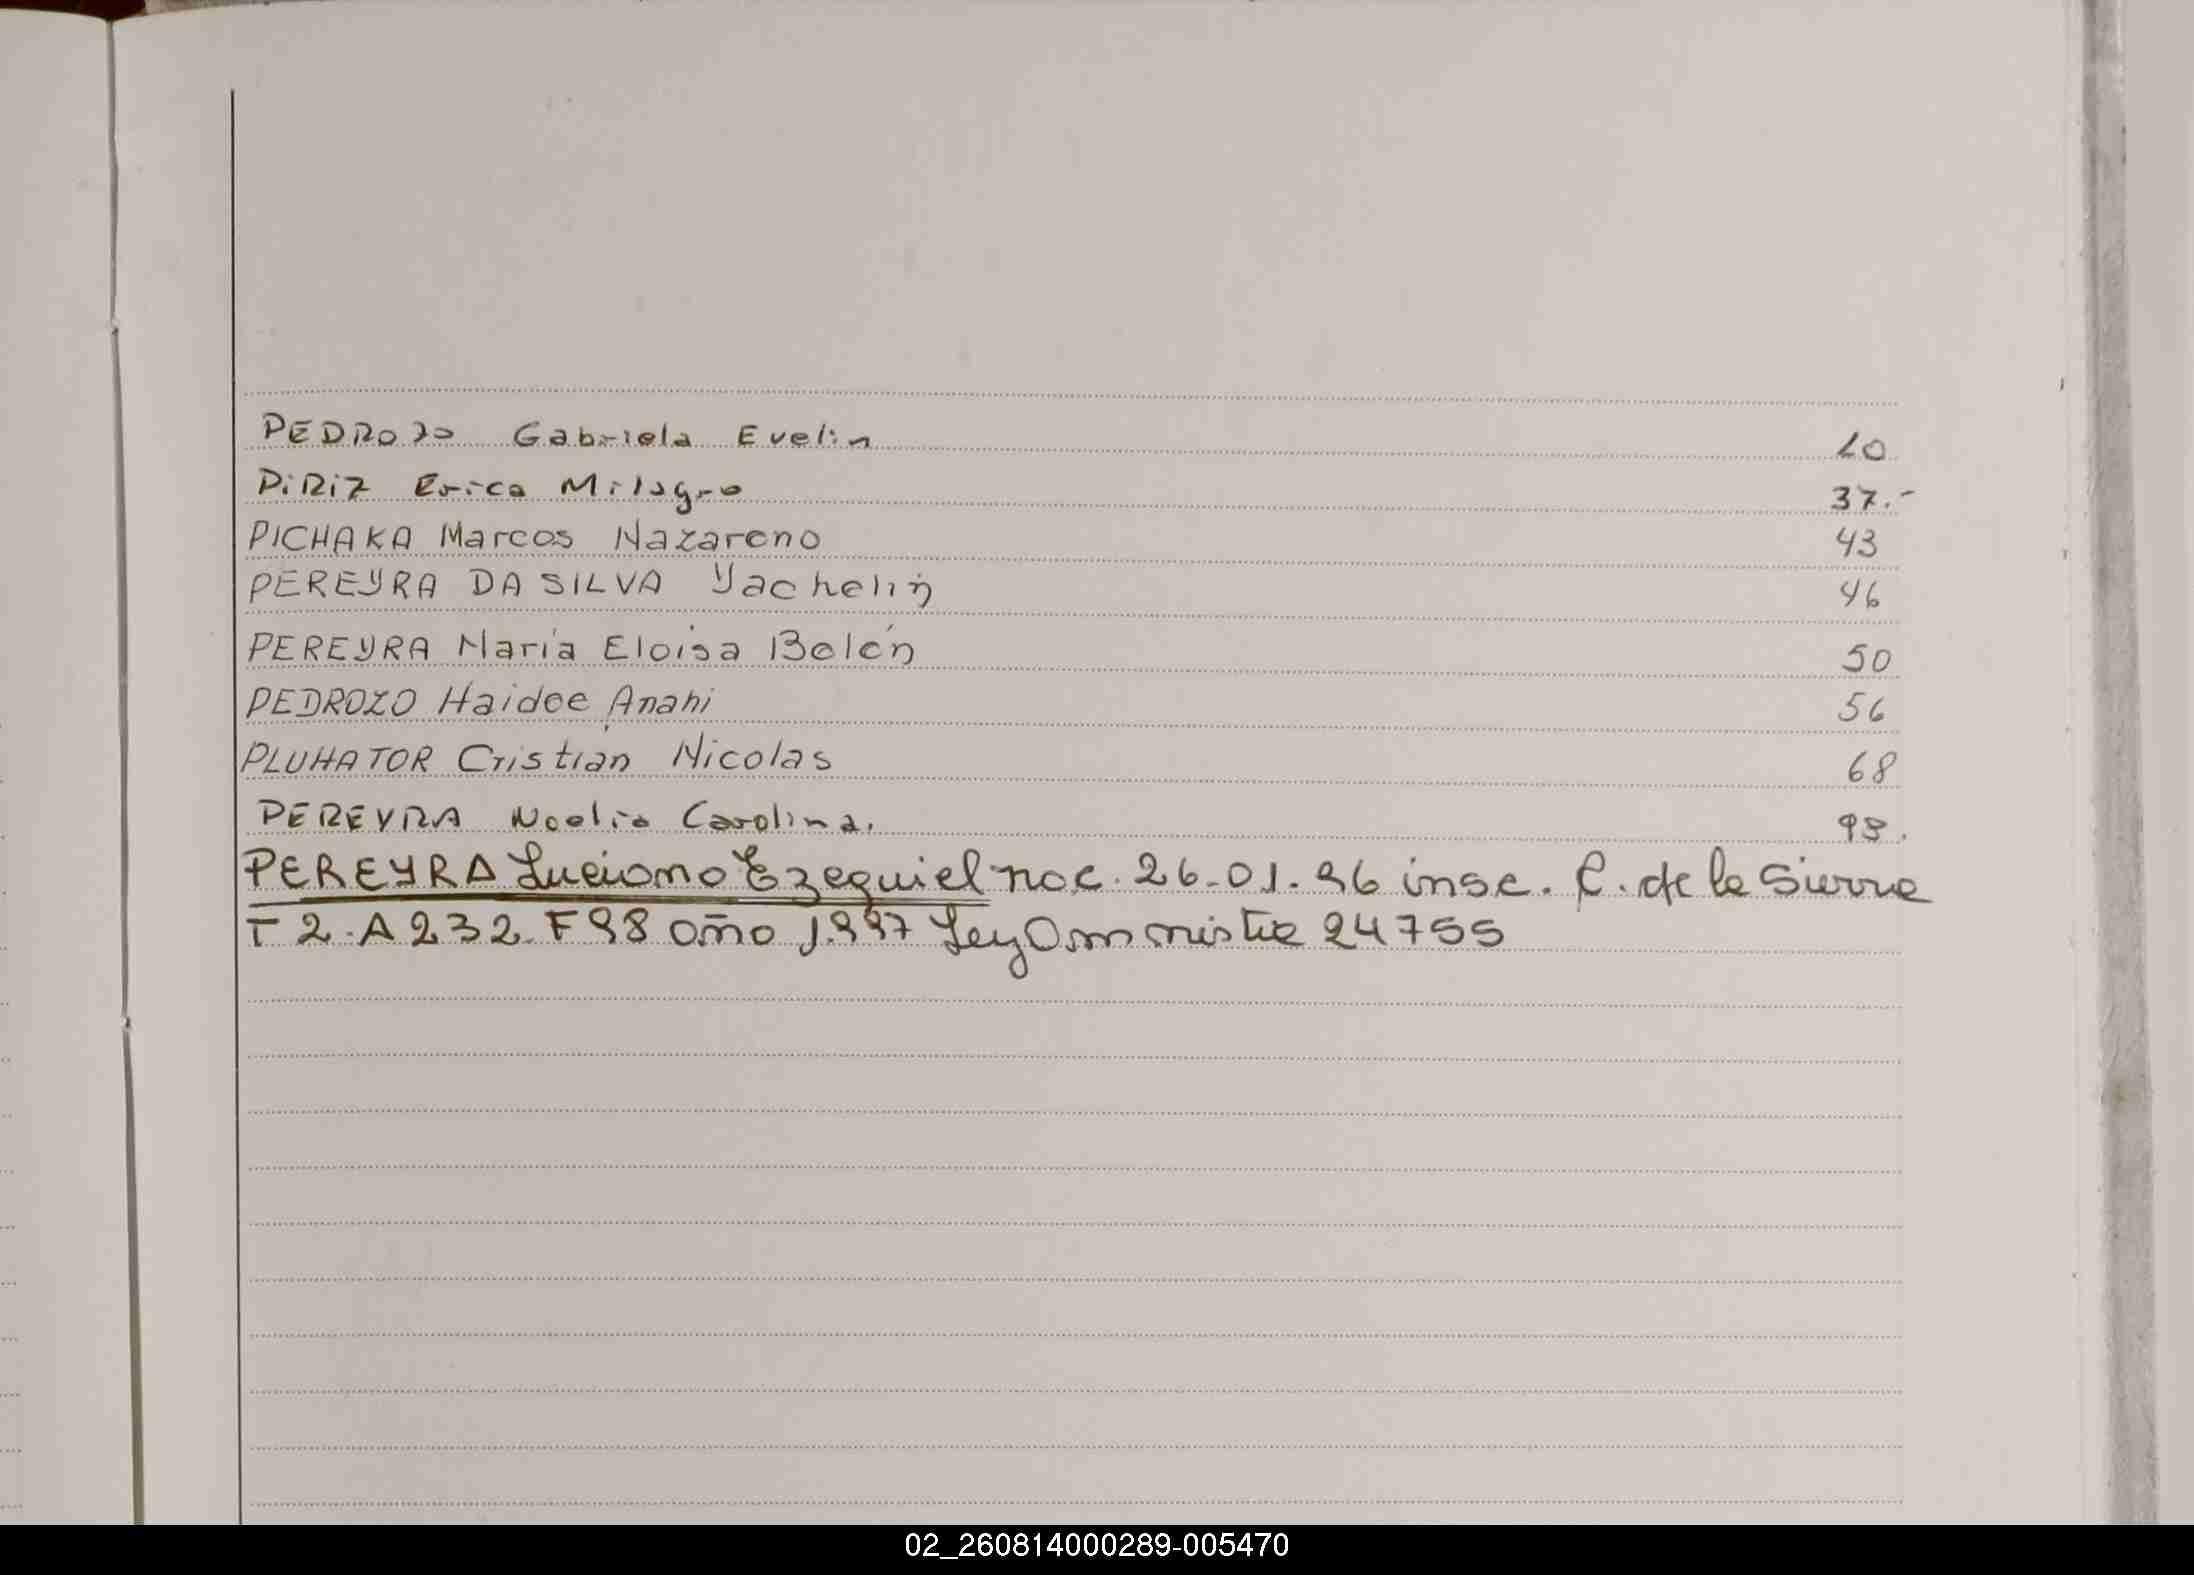 PEDROZO Gabriela Evelin 20
PiRiz Erica Milagro 37.-
PICHAKA Marcos Nazareno 43
PEREYRA DA SILVA Yachelin 46
PEREYRA María Eloisa Belén 50
PEDROZO Haidee Anahi 56
PLUHATOR Cristian Nicolas 68
PEREYRA Noelia Carolina. 98.
PEREYRA Luciano Ezequiel nac. 26-01.96 insc. C. de la Sierra
T 2. A 232. F 98 año 1.997 Ley Ammistia 24755
02_260814000289-005470